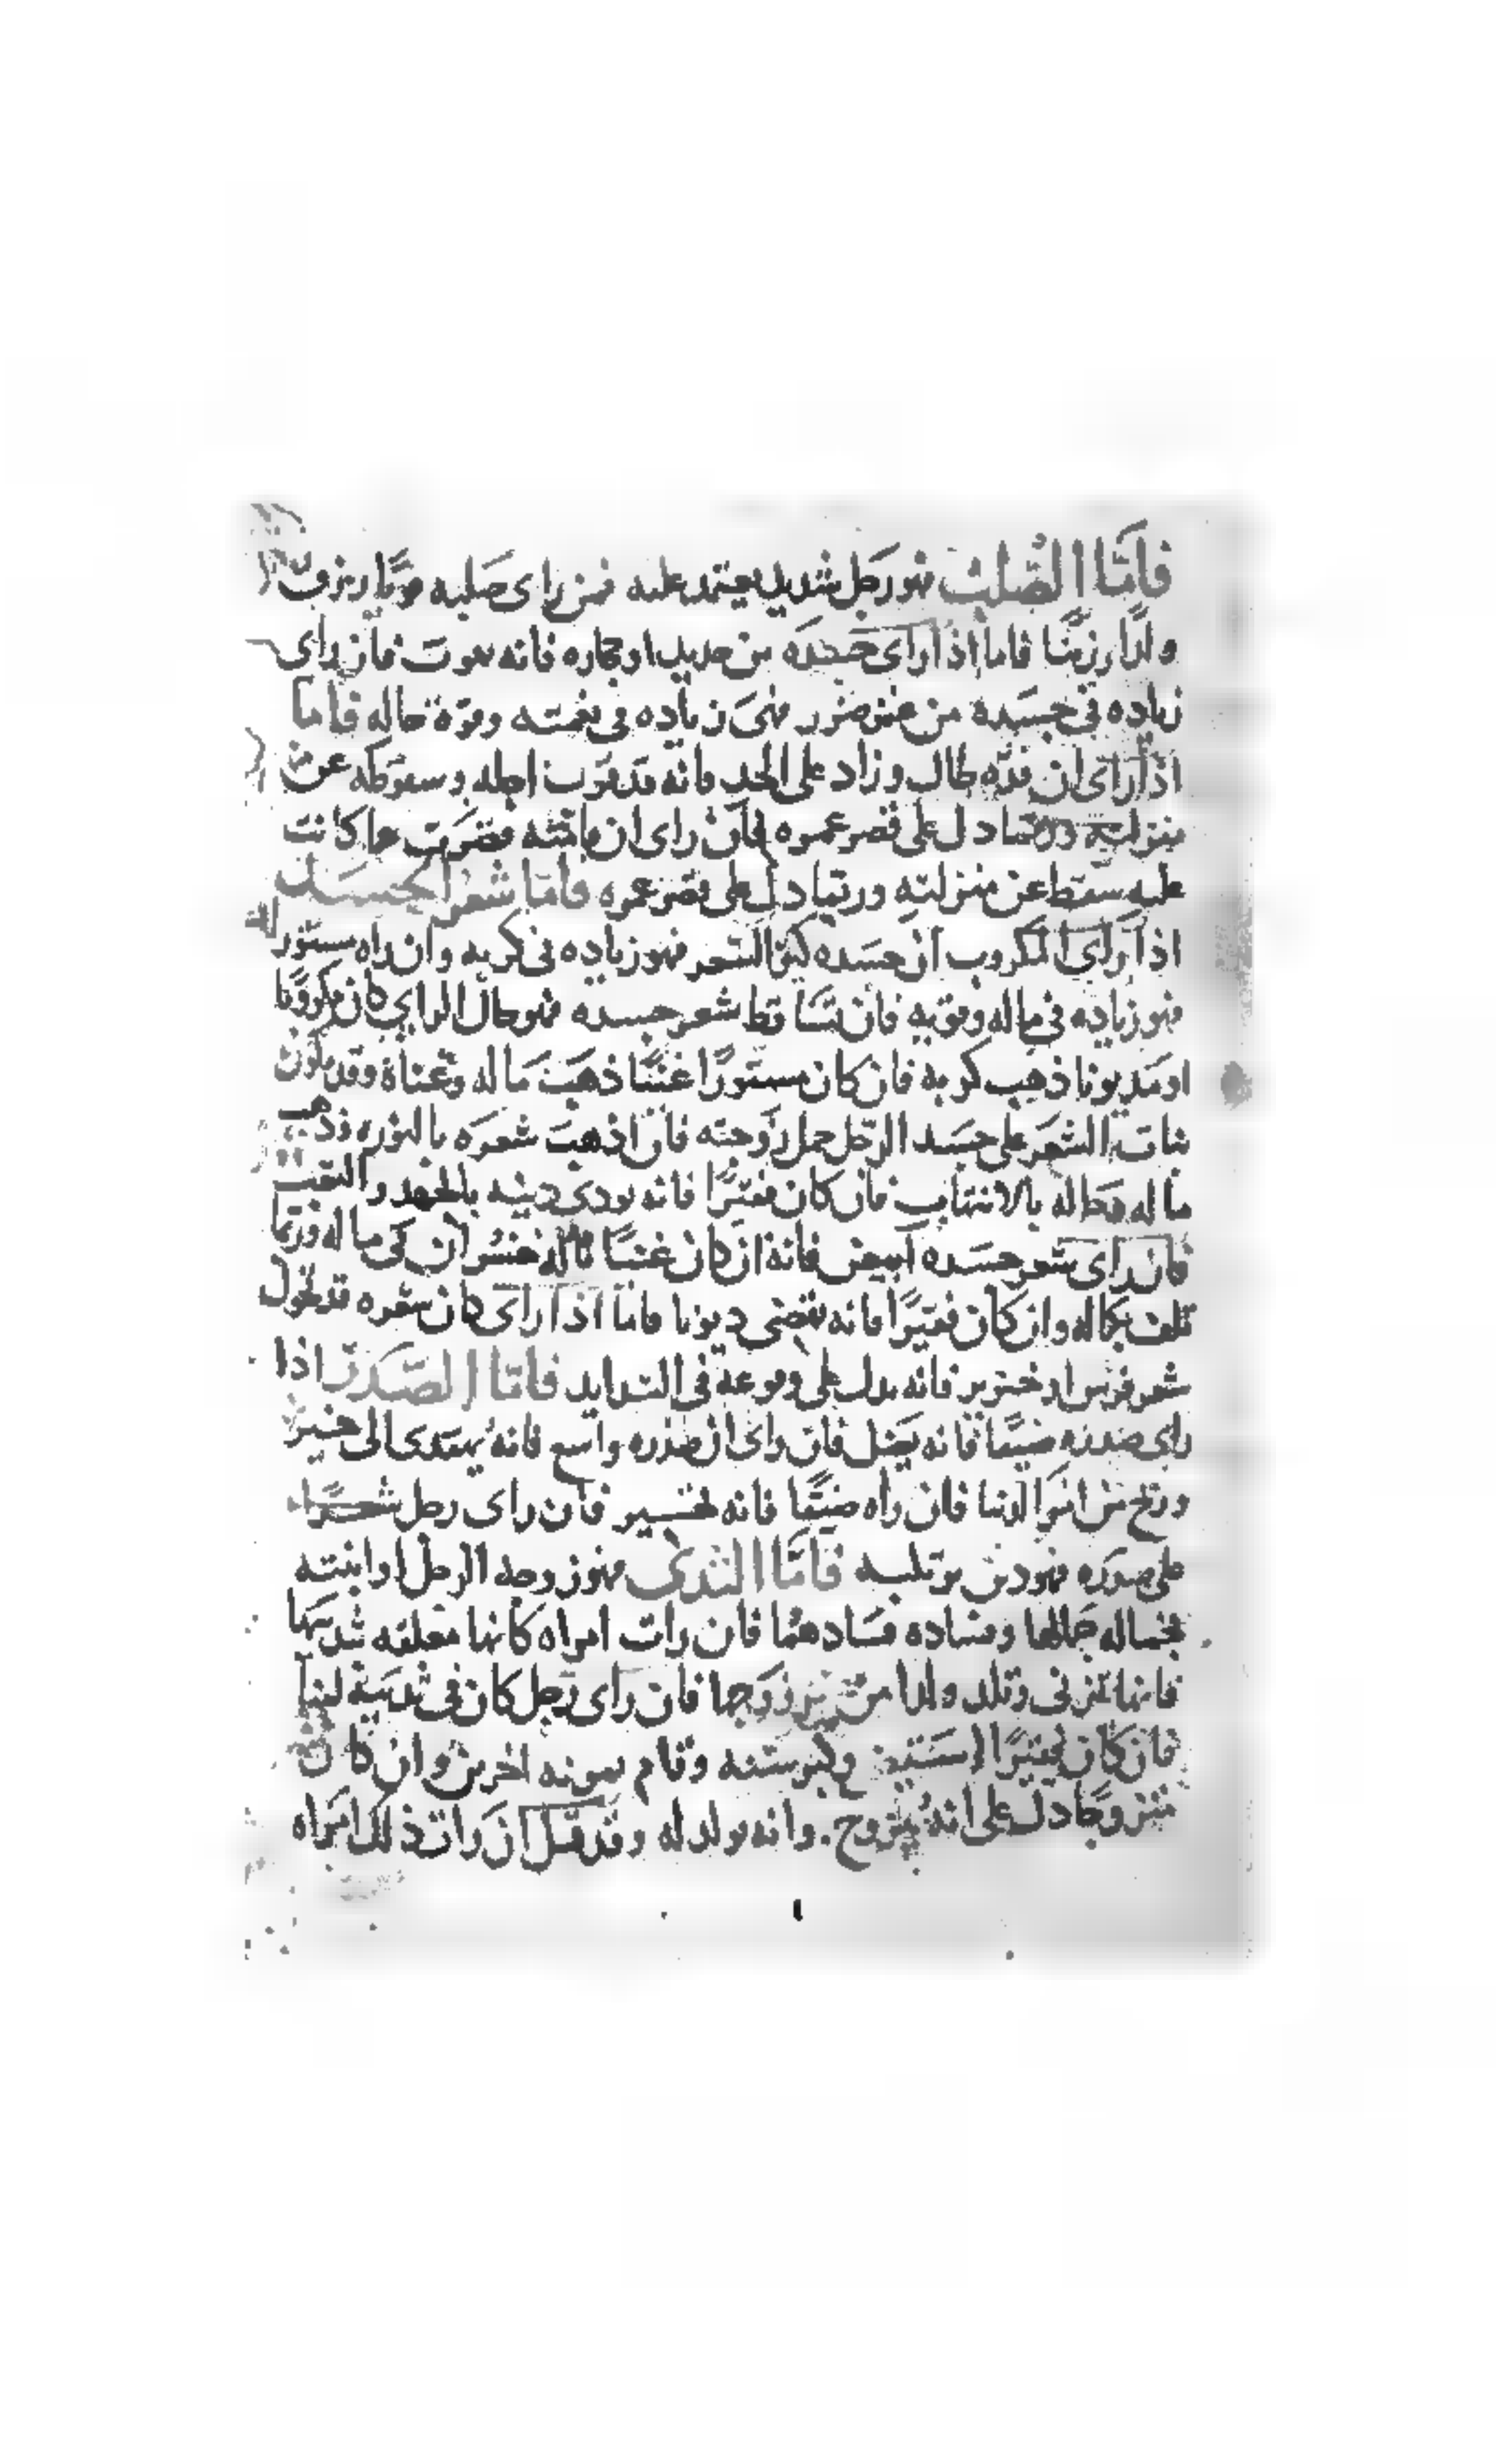 فامّا الصّلب فهو رجل شديد يعتمد عليه فمن راى صلبه قويّا رزق
ولدًا رزينا فاما اذا راى جسده من حديد او حجاره فانه يموت فان راى
زياده في جسده من غير ضرر فهي زياده في نعمته وقوة حاله فاما
اذا راى ان قدّه طال وزاد على الحد فانه قد قرب اجله وسقوطه عن
منزلته وربما دل على قصر عمره فان راى ان قامته قصرت عما كانت
عليه سقط عن منزلته وربما دل على قصر عمره فامّا شعر الجسد
اذا راى المكروب ان جسده كثير الشعر فهو زياده في كربه وان راه مستور
فهو زياده في ماله وقوته فان تساقط شعر جسده فهو حال الراي كان مكروبًا
او مديونا ذهب كربه فان كان مستورًا غنيًا ذهب ماله وغناه وقد يكون
نبات الشعر على جسد الرجل حمل زوجته فان اذهب شعره بالنوره ذهب
ماله فان كان فقيرًا فانه يودى دينه بالجهد والتعب
فان راى شعر جسده ابيض فانه ان كان غنيًا ناله خسران في ماله وربما
تلف بكماله وان كان فقيرًا فانه يقضى ديونا فاما اذا راى كان شعره قد تحول
شعر فرس او خنزير فانه يدل على وقوعه في الشدايد فامّا الصّدر اذا
راى صدره ضيقًا فانه يضل فان راى ان صدره واسع فانه يهتدى الى خير
وربح من امور الدنيا فان راه ضيّقًا فانه يخسر فان راى رجل شعرًا
على صدره فهو دين يرتكبه فامّا الثدى فهو زوجه الرجل او ابنته
فجماله جمالها وفساده فسادهما فان رات امراه كانها معلقه بثديها
فانها تزنى وتلد ولدا من غير زوجها فان راى رجل كان في ثديه لبنا
فان كان فقيرًا استغنى وكبر سنه وقام بمونه اخرين وان كان
متزوجا دل على انه يتزوج. وانه يولد له وقد قيل ان رات ذلك امراه